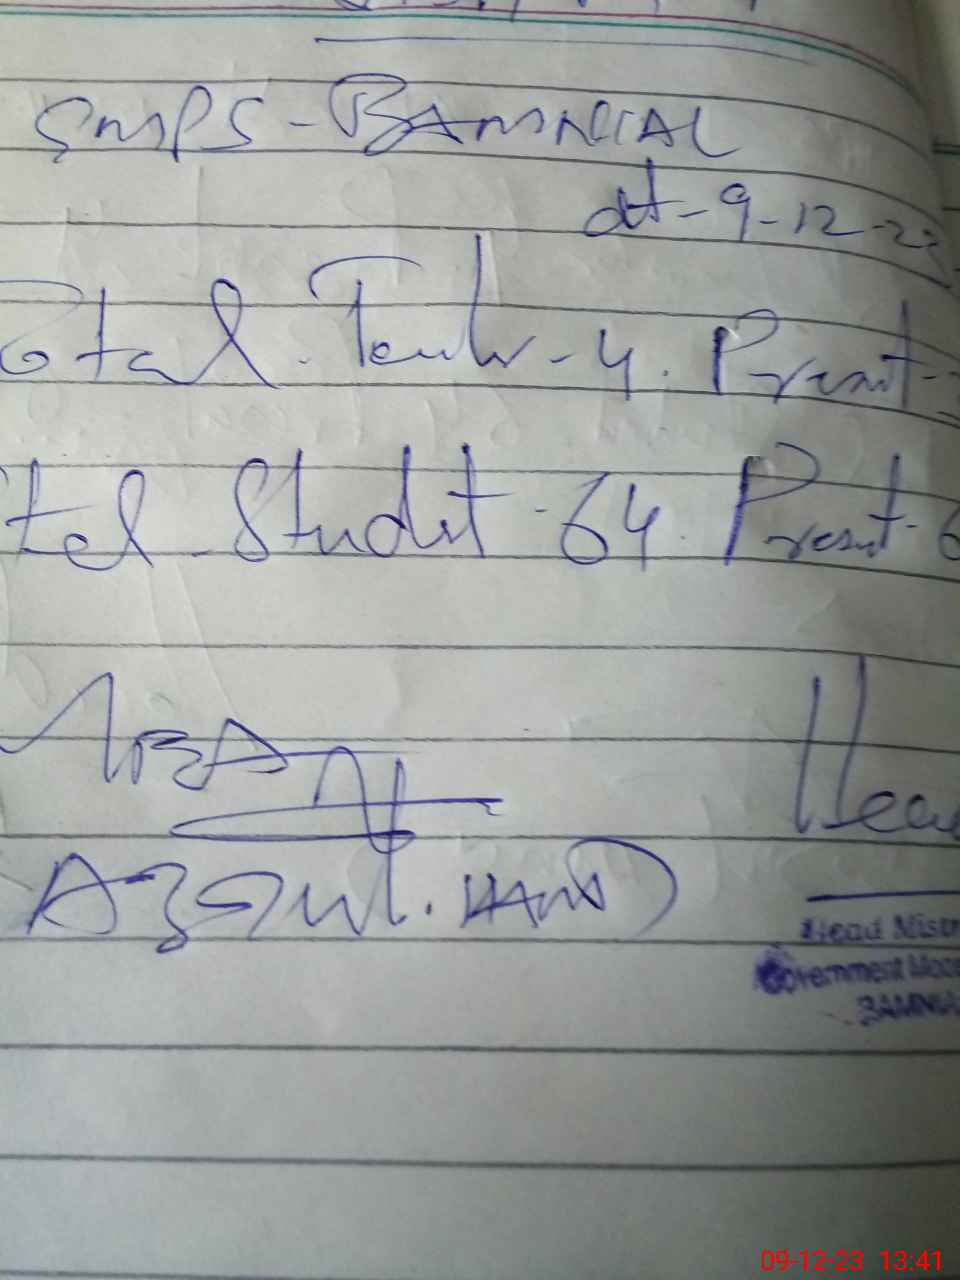 GMPS - BAMNIAL
dt - 9-12-23
Total Teacher - 4. Present -
Total Student - 64. Present - 6
Head
Head Mist
Government Mod
BAMNIA
09-12-23 13:41